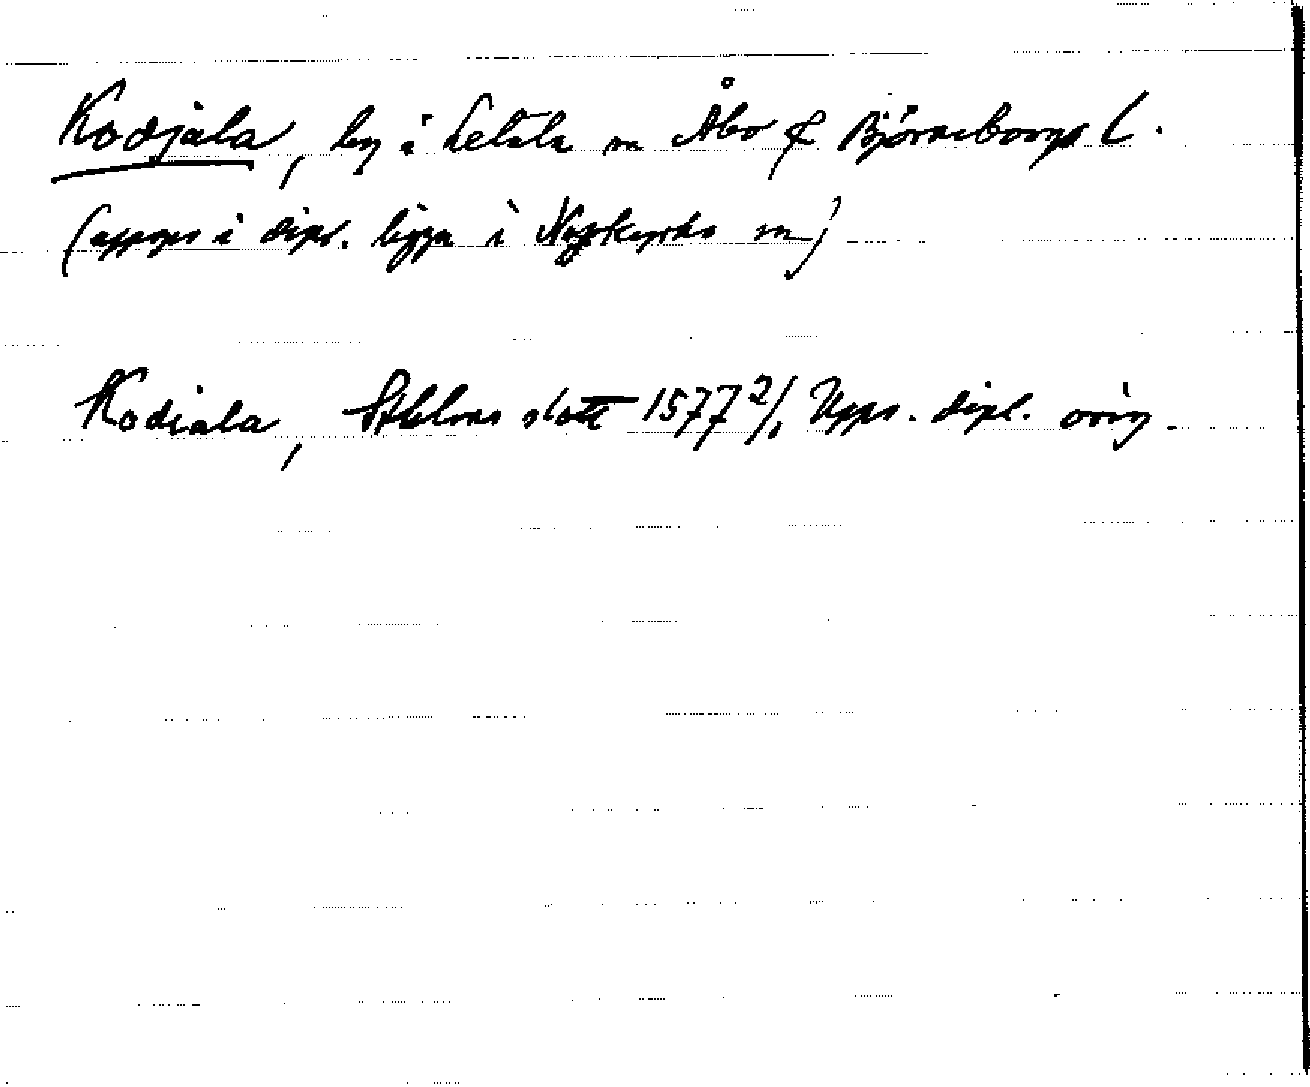 Kodjala, by i Letala sn Åbo & Björneborgs l.
(uppges i dipl. ligga i Nykyrko sn)
Kodiala, Sthlms slott 1577 2/1 Upps. dipl. orig.